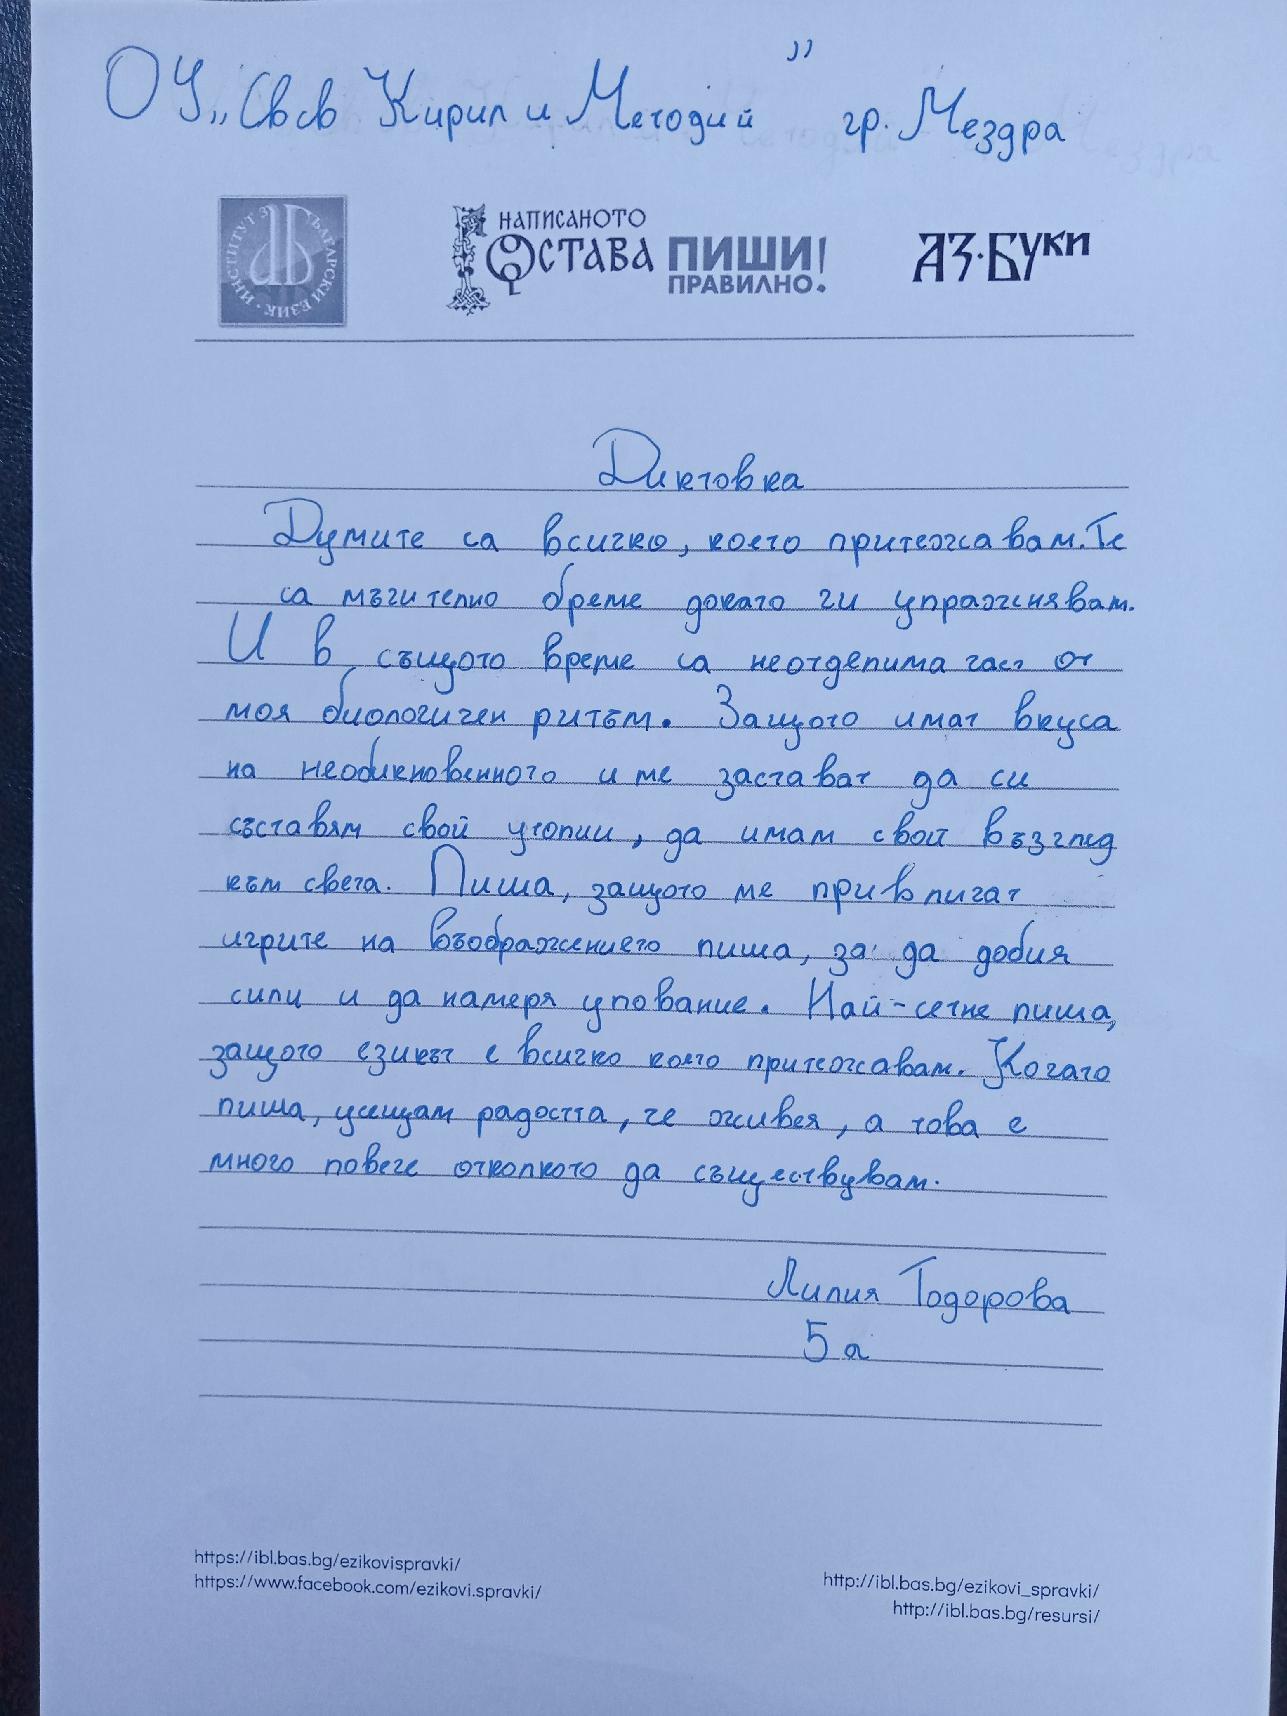 ОУ „Св св Кирил и Методий” гр. Мездра
ИНСТИТУТ ЗА БЪЛГАРСКИ ЕЗИК
НАПИСАНОТО ОСТАВА ПИШИ ПРАВИЛНО! АЗ·БУКИ
Диктовка
Думите са всичко, което притежавам. Те
са мъчително бреме докато ги упражнявам.
И в същото време са неотделима част от
моя биологичен ритъм. Защото имат вкуса
на необикновенното и ме застават да си
съставям свой утопии, да имам свой възглед
към света. Пиша, защото ме привличат
игрите на въображението пиша, за да добия
сили и да намеря упование. Най-сетне пиша,
защото езикът е всичко което притежавам. Когато
пиша, усещам радостта, че живея, а това е
много повече отколкото да съществувам.
Лилия Тодорова
5 а
https://ibl.bas.bg/ezikovispravki/
https://www.facebook.com/ezikovi.spravki/
http://ibl.bas.bg/ezikovi_spravki/
http://ibl.bas.bg/resursi/